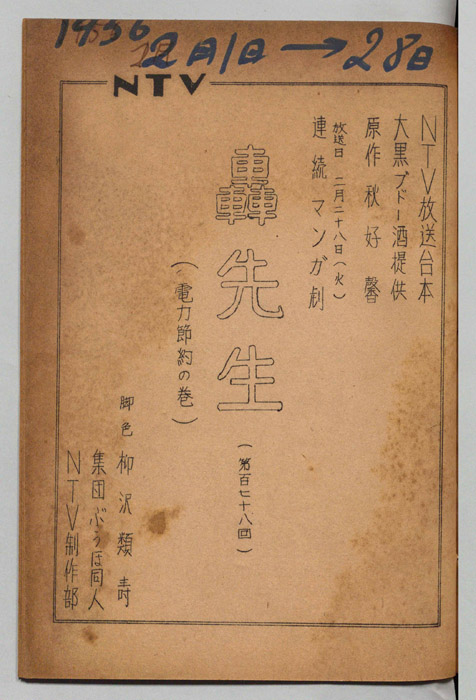 1956 2月1日→28日
NTV
NTV放送台本
大黒ブドー酒提供
原作 秋好馨
放送日 二月二十八日(火)
連続マンガ劇
轟先生
(第百七十八回)
(電力節約の巻)
脚色 柳沢類寿
集団ぶうほ同人
NTV制作部